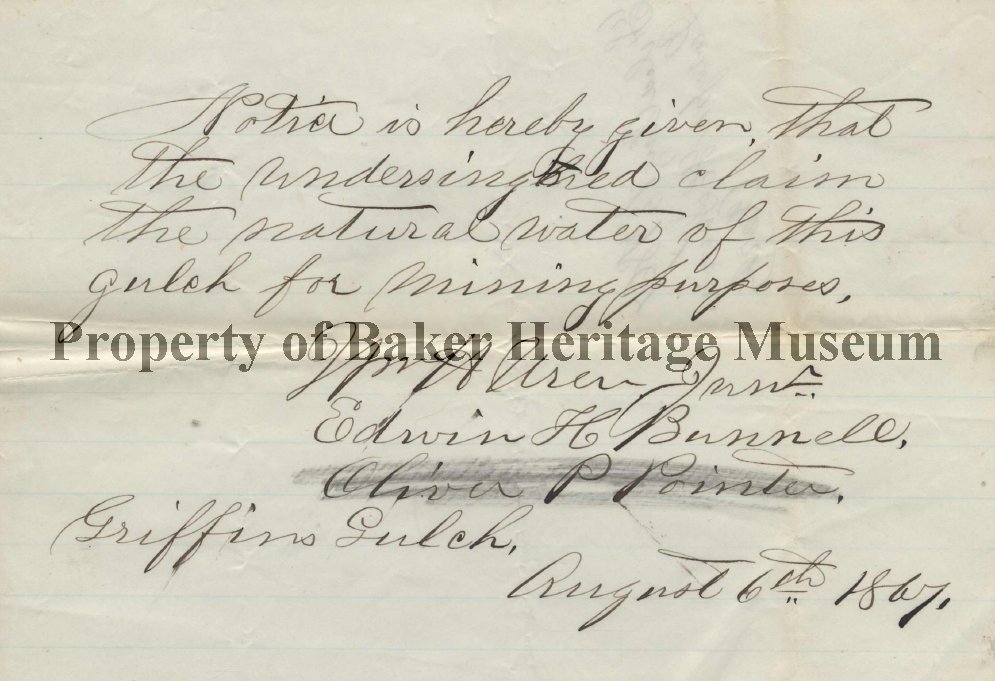 Notice is hereby given, that
the undersingned claim
the natural water of this
gulch for mining purposes.
Property of Baker Heritage Museum
Wm H Junr.
Edwin H Bunnell.
Oliver P Pointer.
Griffins Gulch.
August 6th 1867.